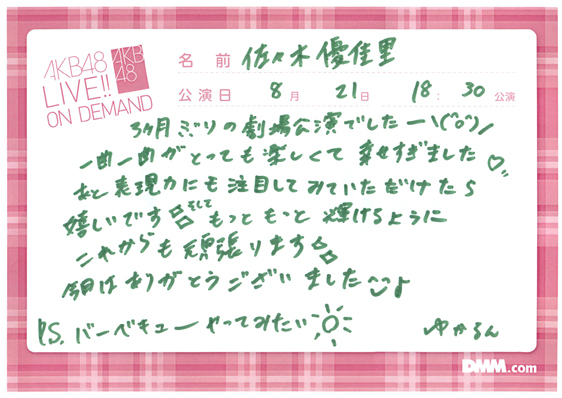 AKB48
LIVE!!
ON DEMAND
AKB
48
名前 佐々木優佳里
公演日 8月 21日 18:30公演
3ヶ月ぶりの劇場公演でしたー\(^o^)/
一曲一曲がとっても楽しくて幸せすぎました♡
あと表現力にも注目してみていただけたら
嬉しいです そして もっともっと輝けるように
これからも頑張ります
今日はありがとうございました♪
P.S. バーベキューやってみたい
ゆかるん
DMM.com